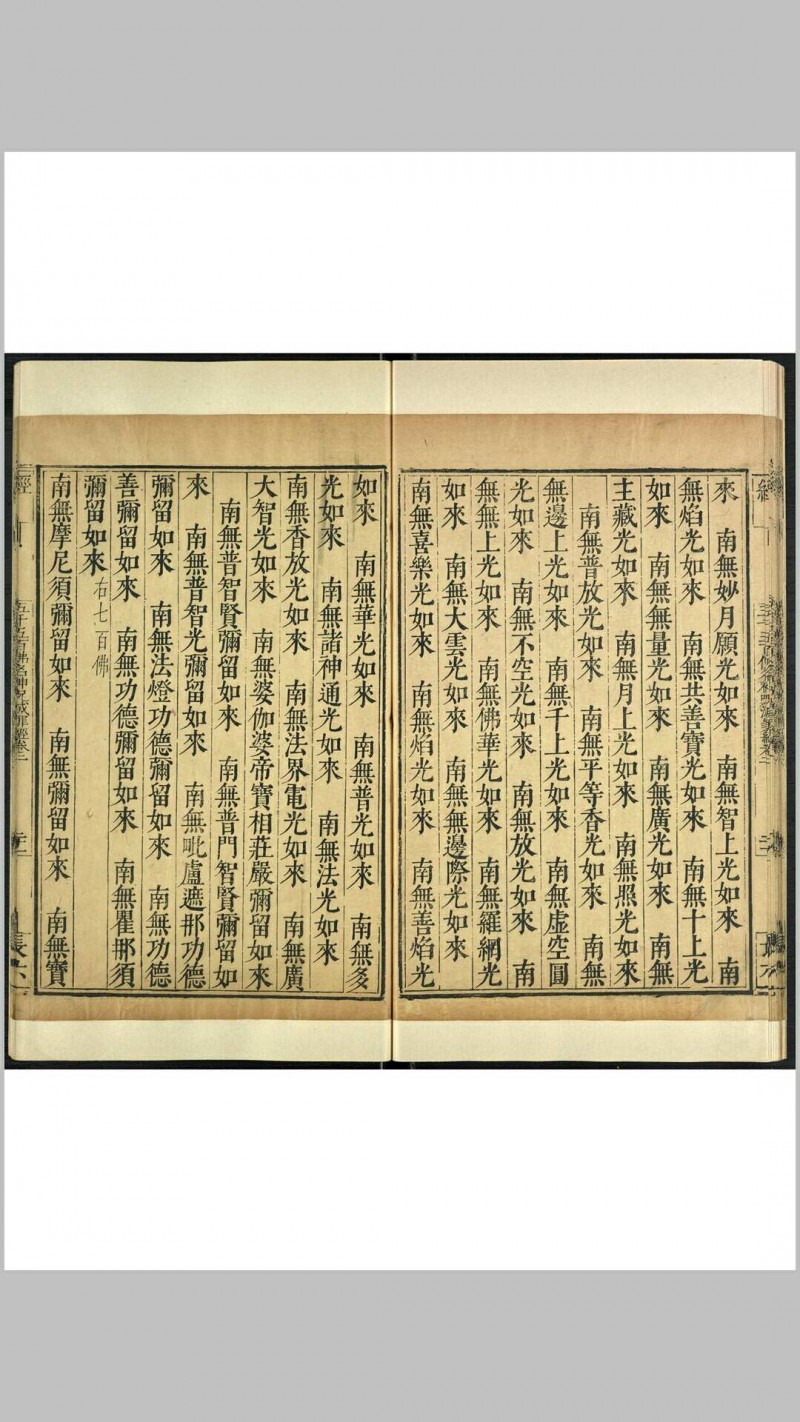 來　南無妙月願光如來　南無智上光如來　南
無焰光如來　南無共善寶光如來　南無十上光
如來　南無無量光如來　南無廣光如來　南無
主藏光如來　南無月上光如來　南無照光如來
南無普放光如來　南無平等香光如來　南無
無邊上光如來　南無千上光如來　南無虛空圓
光如來　南無不空光如來　南無放光如來　南
無無上光如來　南無佛華光如來　南無羅網光
如來　南無大雲光如來　南無無邊際光如來
南無喜樂光如來　南無焰光如來　南無善焰光
如來　南無華光如來　南無普光如來　南無多
光如來　南無諸神通光如來　南無法光如來
南無香放光如來　南無法界電光如來　南無廣
大智光如來　南無婆伽婆帝寶相莊嚴彌留如來
南無普智賢彌留如來　南無普門智賢彌留如
來　南無普智光彌留如來　南無毗盧遮那功德
彌留如來　南無法燈功德彌留如來　南無功德
善彌留如來　南無功德彌留如來　南無瞿那須
彌留如來 右七百佛
南無摩尼須彌留如來　南無彌留如來　南無寶
經
五千五百佛名神呪滅罪經卷二